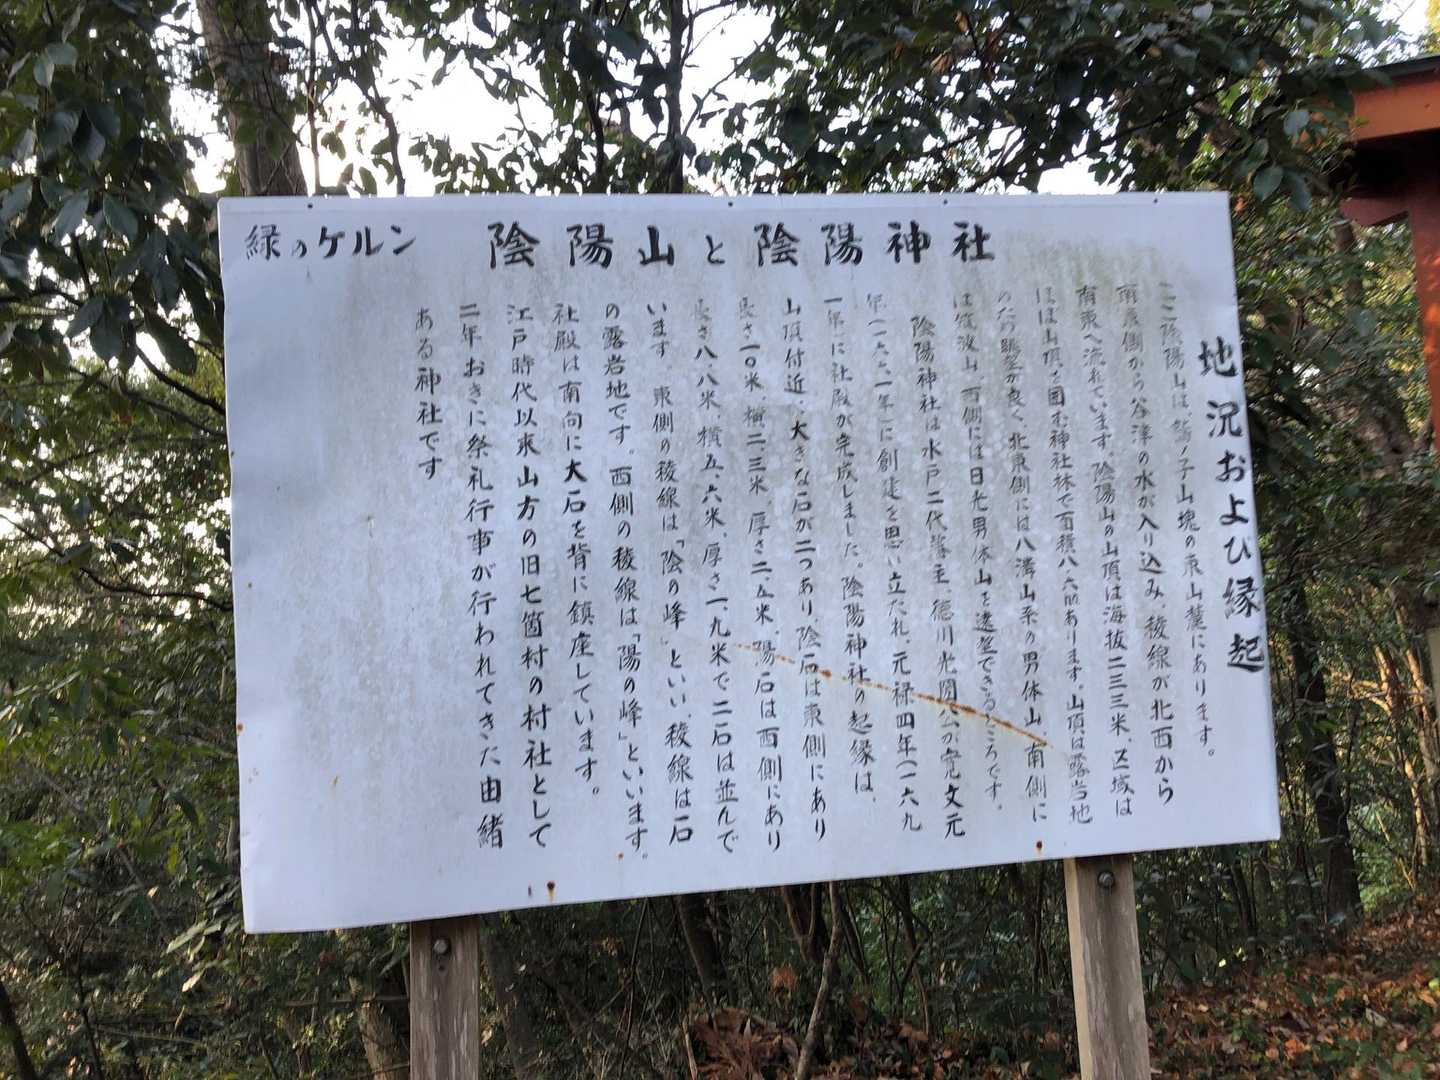 緑のケルン 陰陽山と陰陽神社
地況および縁起
陰陽山は、鷲ノ子山塊の東山麓にあります。
南東側から谷津の水が入り込み、稜線が北西から
南東へ流れています。陰陽山の山頂は海抜二三三米、区域は
ほぼ山頂を囲む神社林で面積八六㎡あります。山頂は露岩地
のため眺望が良く、北東側には八溝山系の男体山、南側に
は筑波山、西側には日光男体山を遠望できるところです。
陰陽神社は水戸二代藩主、徳川光圀公が寛文元
年(一六六一年)に創建を思い立たれ、元禄四年(一六九
一年)に社殿が完成しました。陰陽神社の起縁は、
山頂付近に大きな石が二つあり、陰石は東側にあり
長さ一〇米、横二、三米、厚さ二、五米、陽石は西側にあり
長さ八、八米、横五、六米、厚さ一、九米で二石は並んで
います。東側の稜線は「陰の峰」といい、稜線は石
の露岩地です。西側の稜線は「陽の峰」といいます。
社殿は南向に大石を背に鎮座しています。
江戸時代以来山方の旧七箇村の村社として
二年おきに祭礼行事が行われてきた由緒
ある神社です